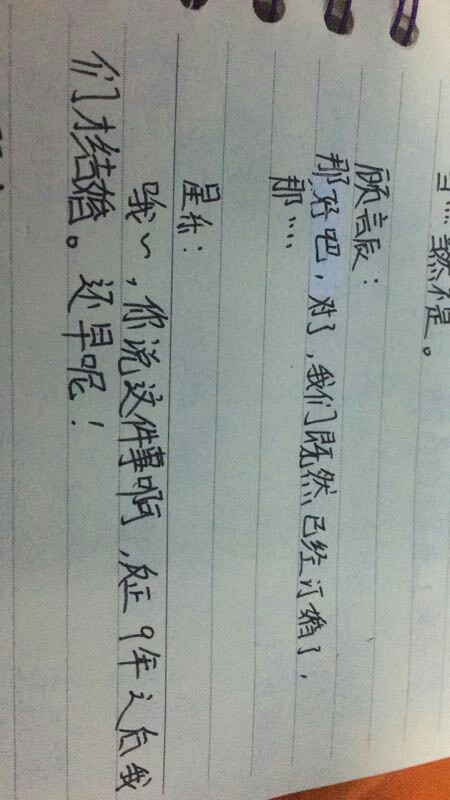 当……然不是。
顾言辰：
那好吧，对了，我们既然已经订婚了，
那……
星乐：
哦～，你说这件事啊，反正9年之后我
们才结婚。还早呢！